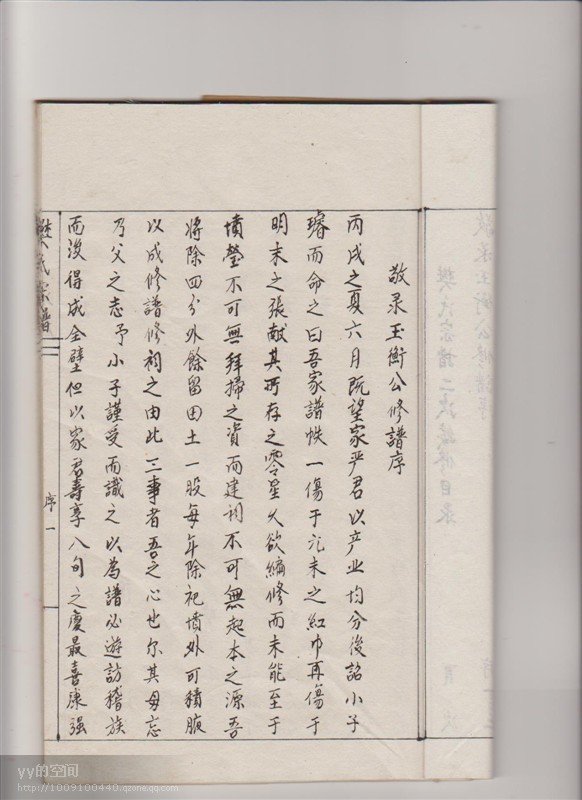 敬录玉衡公修譜序
丙戌之夏六月既望家严君以产业均分後詔小子
璿而命之曰吾家譜帙一傷于元末之红巾再傷于
明末之張献其所存之零星久欲编修而未能至于
墳塋不可無拜掃之資而建祠不可無起本之源吾
将除四分外餘留田土一股每年除祀墳外可積腋
以成修譜修祠之由此三事者吾之心也尔其毋忘
乃父之志予小子謹受而識之以為譜必遊訪稽族
而後得成全壁但以家君壽享八旬之慶最喜康强
樊氏宗譜
序一
yy的空间
http://1009100440.qzone.qq.com